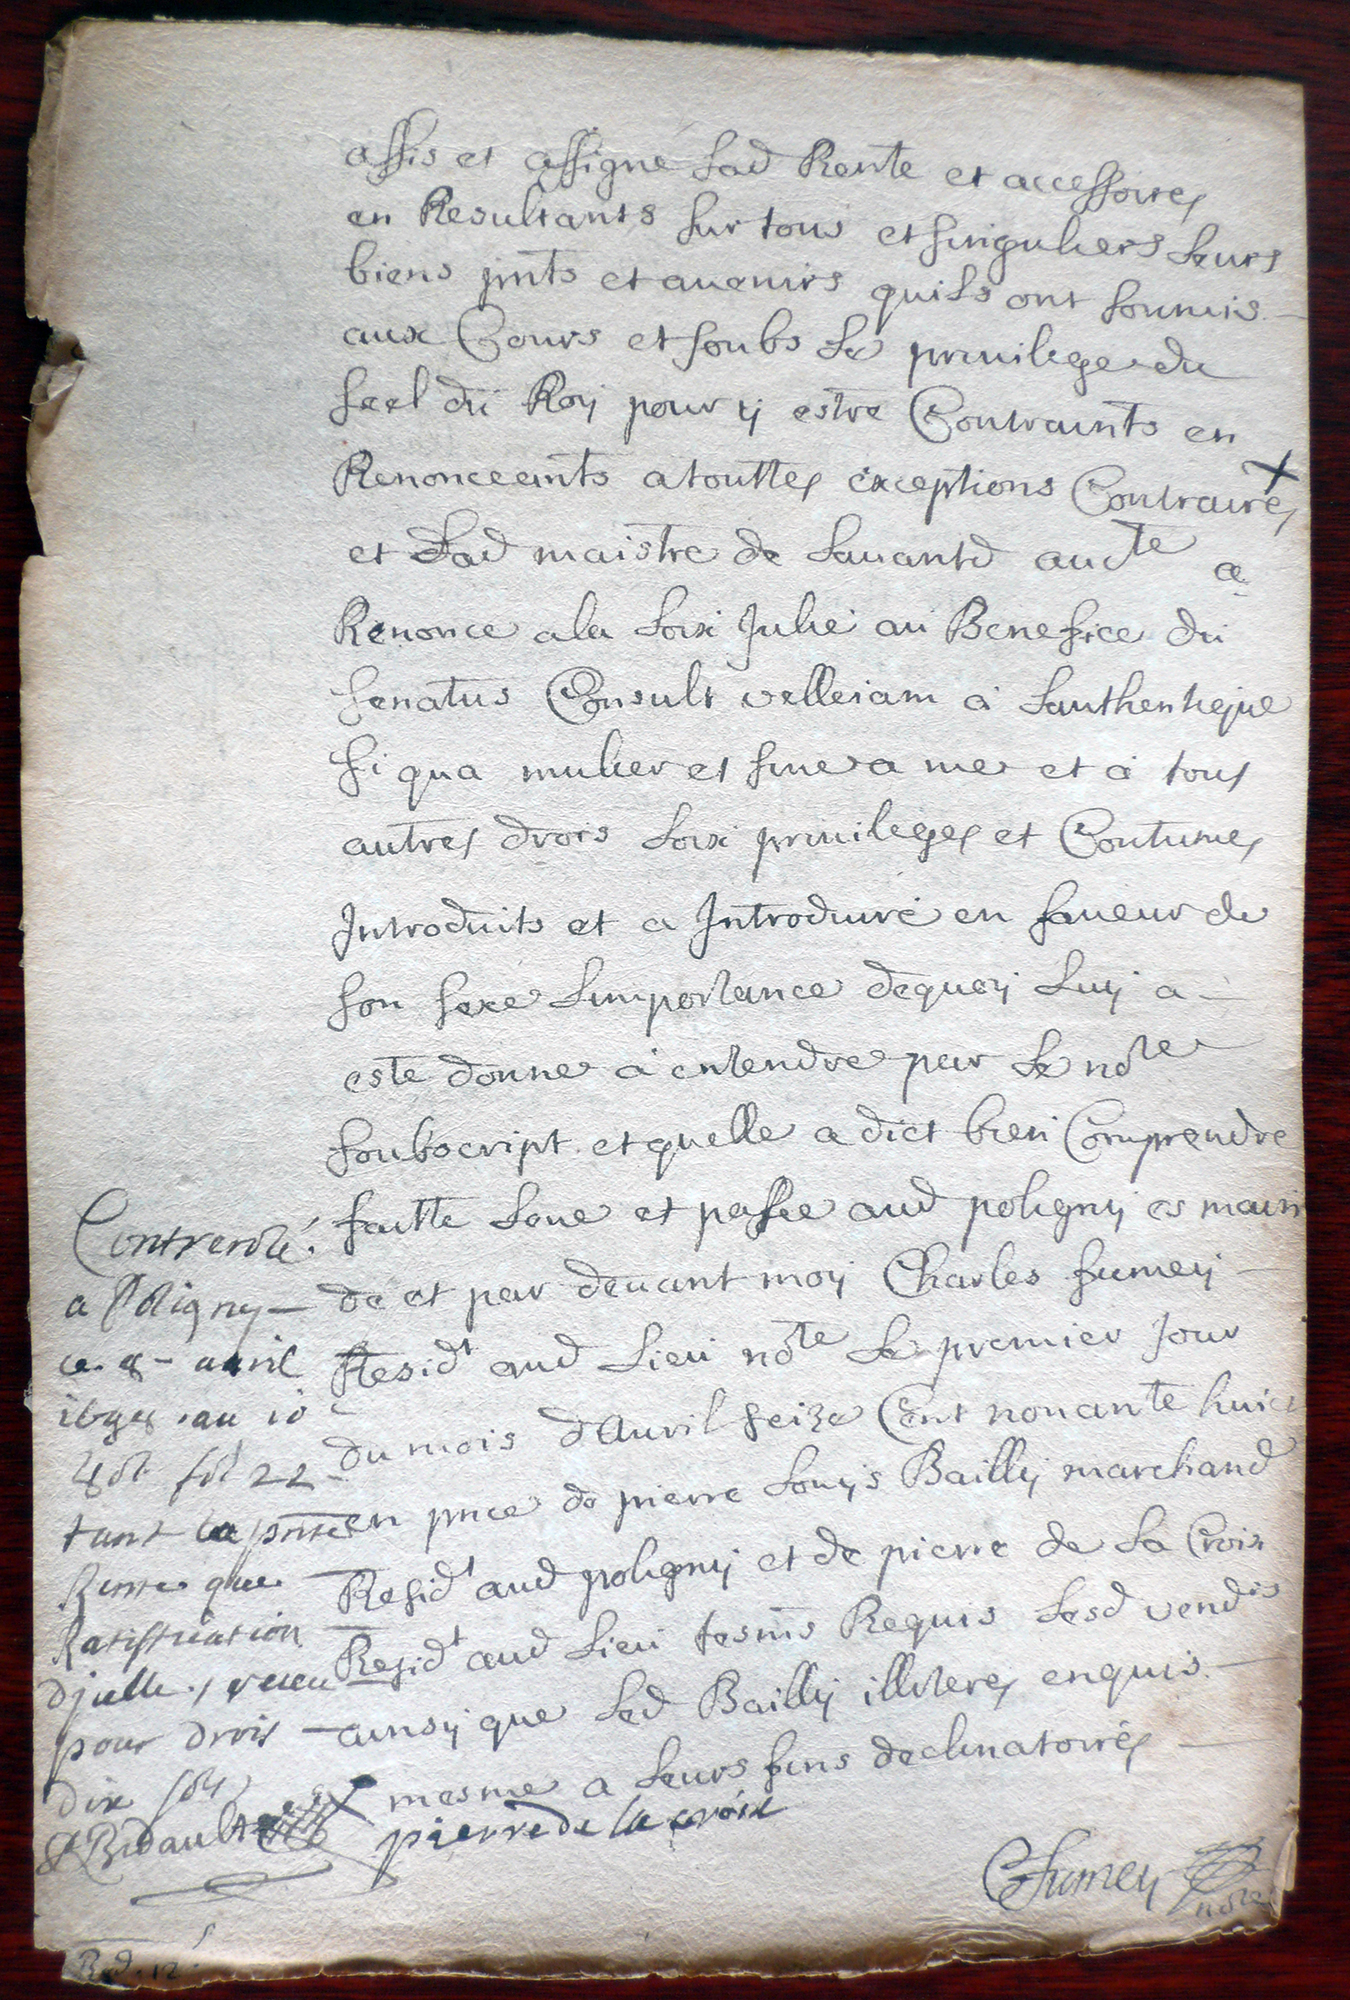 assis et assigne Lad Rente et accessoires
en Resultants sur tous et singuliers Leurs
biens pnts et auenirs quils ont soumis
aux Cours et soubs Le priuilege du
seel du Roy pour y estre Contraints en
Renonceants a touttes exceptions Contraires
et Lad maistre de Lauantd audte a
Renonce a la Loix Julie au Benefice du
senatus Consult velleiam à Lauthentique
si qua mulier et siue a me et à tous
autres drois Loix priuileges et Coutumes
Introduits et a Introduire en faueur de
son sexe Limportance dequoy Luy a
este donne à entendre par Le note
soubscript et quelle a dict bien Comprendre
faitte Leue et passee aud poligny es mains
de et par deuant moy Charles fumey
Residt aud Lieu note Le premier Jour
du mois dAuril seize Cent nonante huict
en pnce de pierre Louys Bailly marchand
Residt aud poligny et de pierre de La Croix
Residt aud Lieu tesms Requis Lesd vendrs
ainsy que Led Bailly illiteres enquis
mesme a Leurs fins declinatoires
pierre de la croix
CFumey
note
Contrerolé
a Poligny
ce 8 auril
1698 au 10
vol fol 22
tant la pnte
Rente que
Ratiffication
djcelle, receu
pour drois
dix sols
Bidault
Rd. 12 s